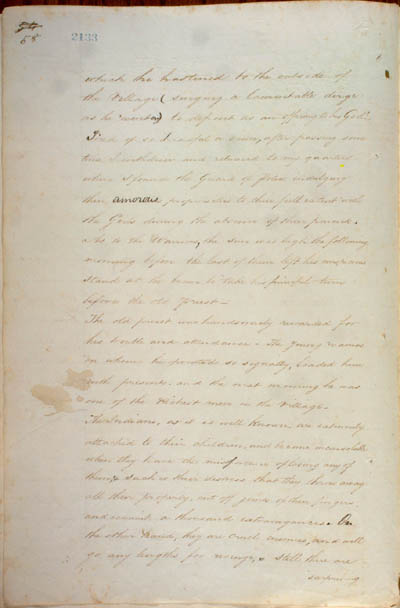 58
2133
which he hastened to the outside of
the Village (singing a lamentable dirge
as he went) to deposit as an offering to his God.
Tired of so dreadful a scene, after passing some
time I withdrew and retired to my quarters
where I found the Guard of police indulging
their amorous propensities to their full extent with
the Girls during the absence of their parents.
As to the Warriors, the sun was high the following
morning before the last of them left his
stand at the beam to take his painful turn
before the old priest—
The old priest was handsomely rewarded for
his trouble and attendance. The young warriors
on whom he operated so signally, loaded him
with presents, and the next morning he was
one of the richest men in the Village.
The Indians, as it is well known, are extremely
attached to their children, and become inconsolable
when they have the misfortune of losing any of
them, such is their distress that they throw away
all their property, cut off joints of their fingers
and commit a thousand extravagances. On
the other hand, they are cruel enemies, and will
go any lengths for revenge, still there are